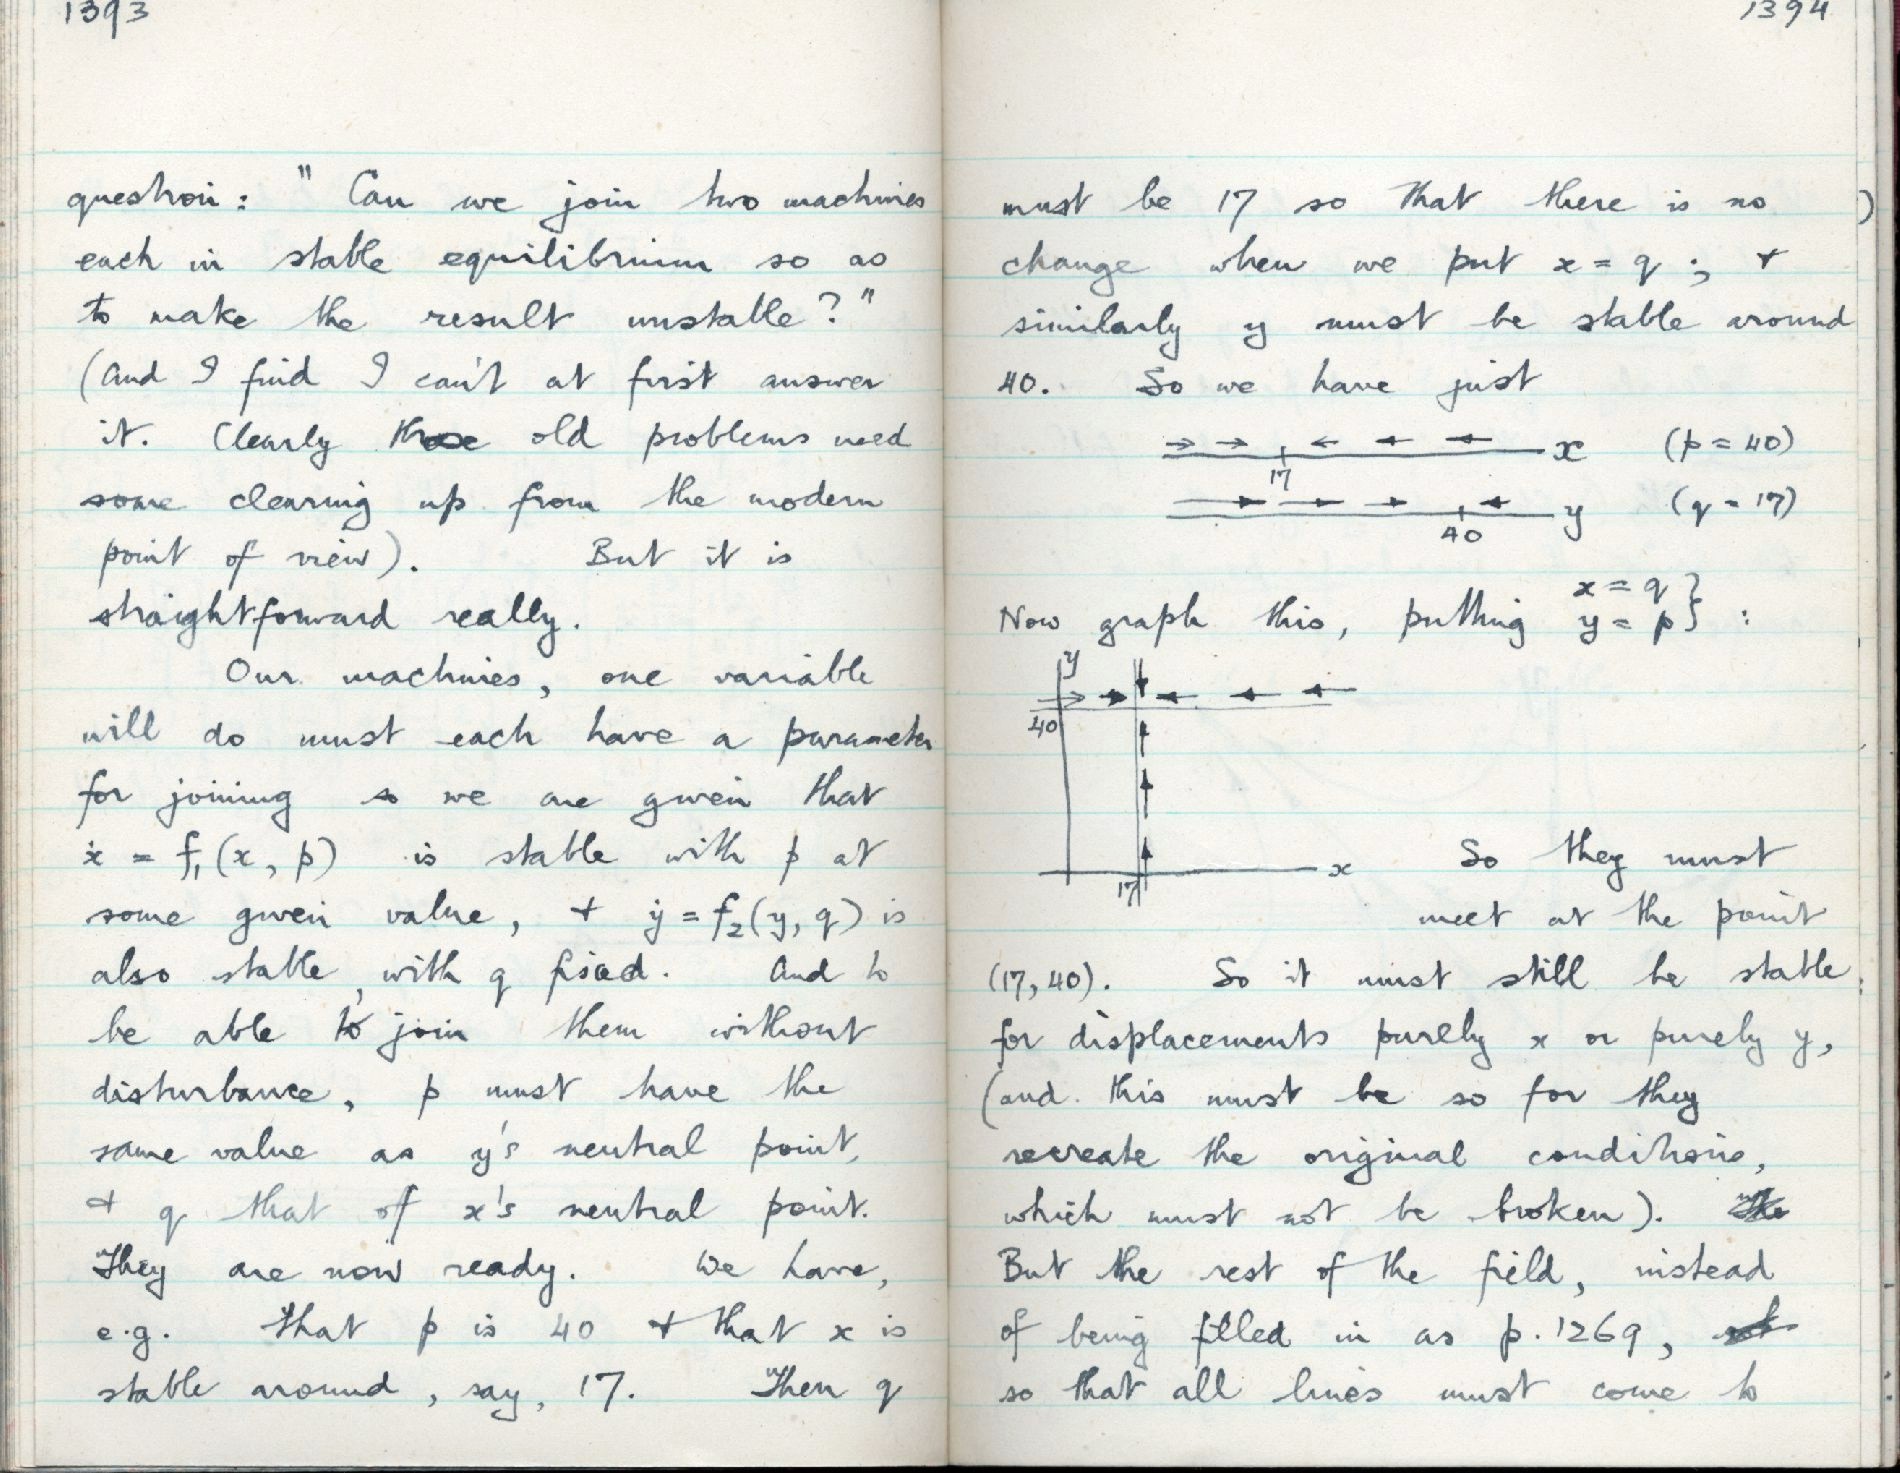 1393
question: " Can we join two machines
each in stable equilibrium so as
to make the result unstable?"
(And I find I can't at first answer
it. Clearly these old problems need
some clearing up from the modern
point of view). But it is
straightforward really.
Our machines, one variable
will do must each have a parameter
for joining so we are given that
ẋ = f₁(x, p) is stable with p at
some given value, + ẏ = f₂(y, q) is
also stable, with q fixed. And to
be able to join them without
disturbance, p must have the
same value as y's neutral point,
+ q that of x's neutral point.
They are now ready. We have,
e.g. that p is 40 + that x is
stable around, say, 17. Then q
1394
must be 17 so that there is no
change when we put x = q ; +
similarly y must be stable around
40. So we have just
x (p = 40)
17
y (q = 17)
40
x = q }
Now graph this, putting y = p } :
y
40
x
17
So they must
meet at the point
(17, 40). So it must still be stable
for displacements purely x or purely y,
(and this must be so for they
recreate the original conditions,
which must not be broken). The
But the rest of the field, instead
of being filled in as p. 1269,
so that all lines must come to